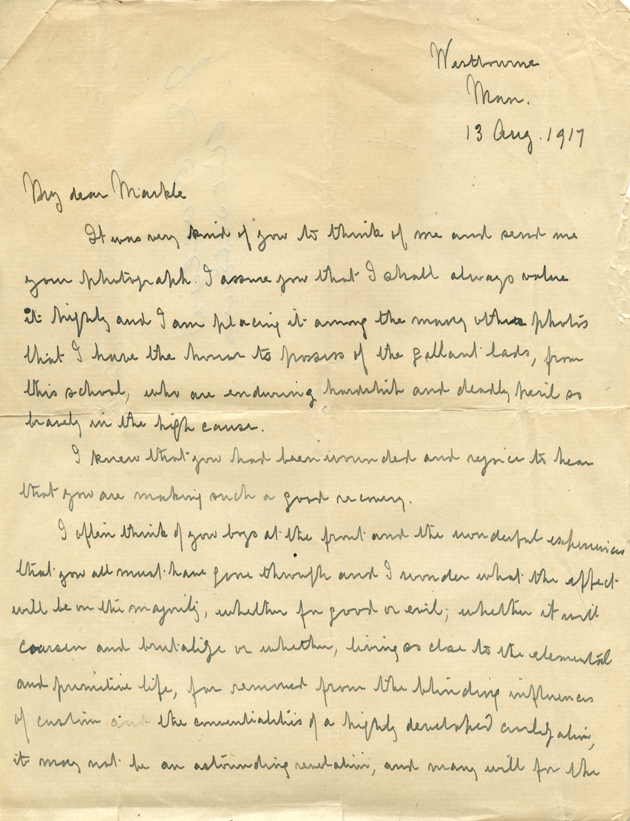 Westbourne
Man.
13 Aug. 1917
My dear Markle
It was very kind of you to think of me and send me
your photograph. I assure you that I shall always value
it highly and I am placing it among the many other photos
that I have the honor to possess of the gallant lads, from
this school, who are enduring hardship and deadly peril so
bravely in the high cause.
I knew that you had been wounded and rejoice to hear
that you are making such a good recovery.
I often think of you boys at the front and the wonderful experiences
that you all must have gone through and I wonder what the effect
will be on the majority, whether for good or evil; whether it will
coarsen and brutalize or whether, living so close to the elemental
and primitive life, far removed from the blinding influences
of custom and the conventialities of a highly developed civilization,
it may not be an astounding revelation, and many will for the